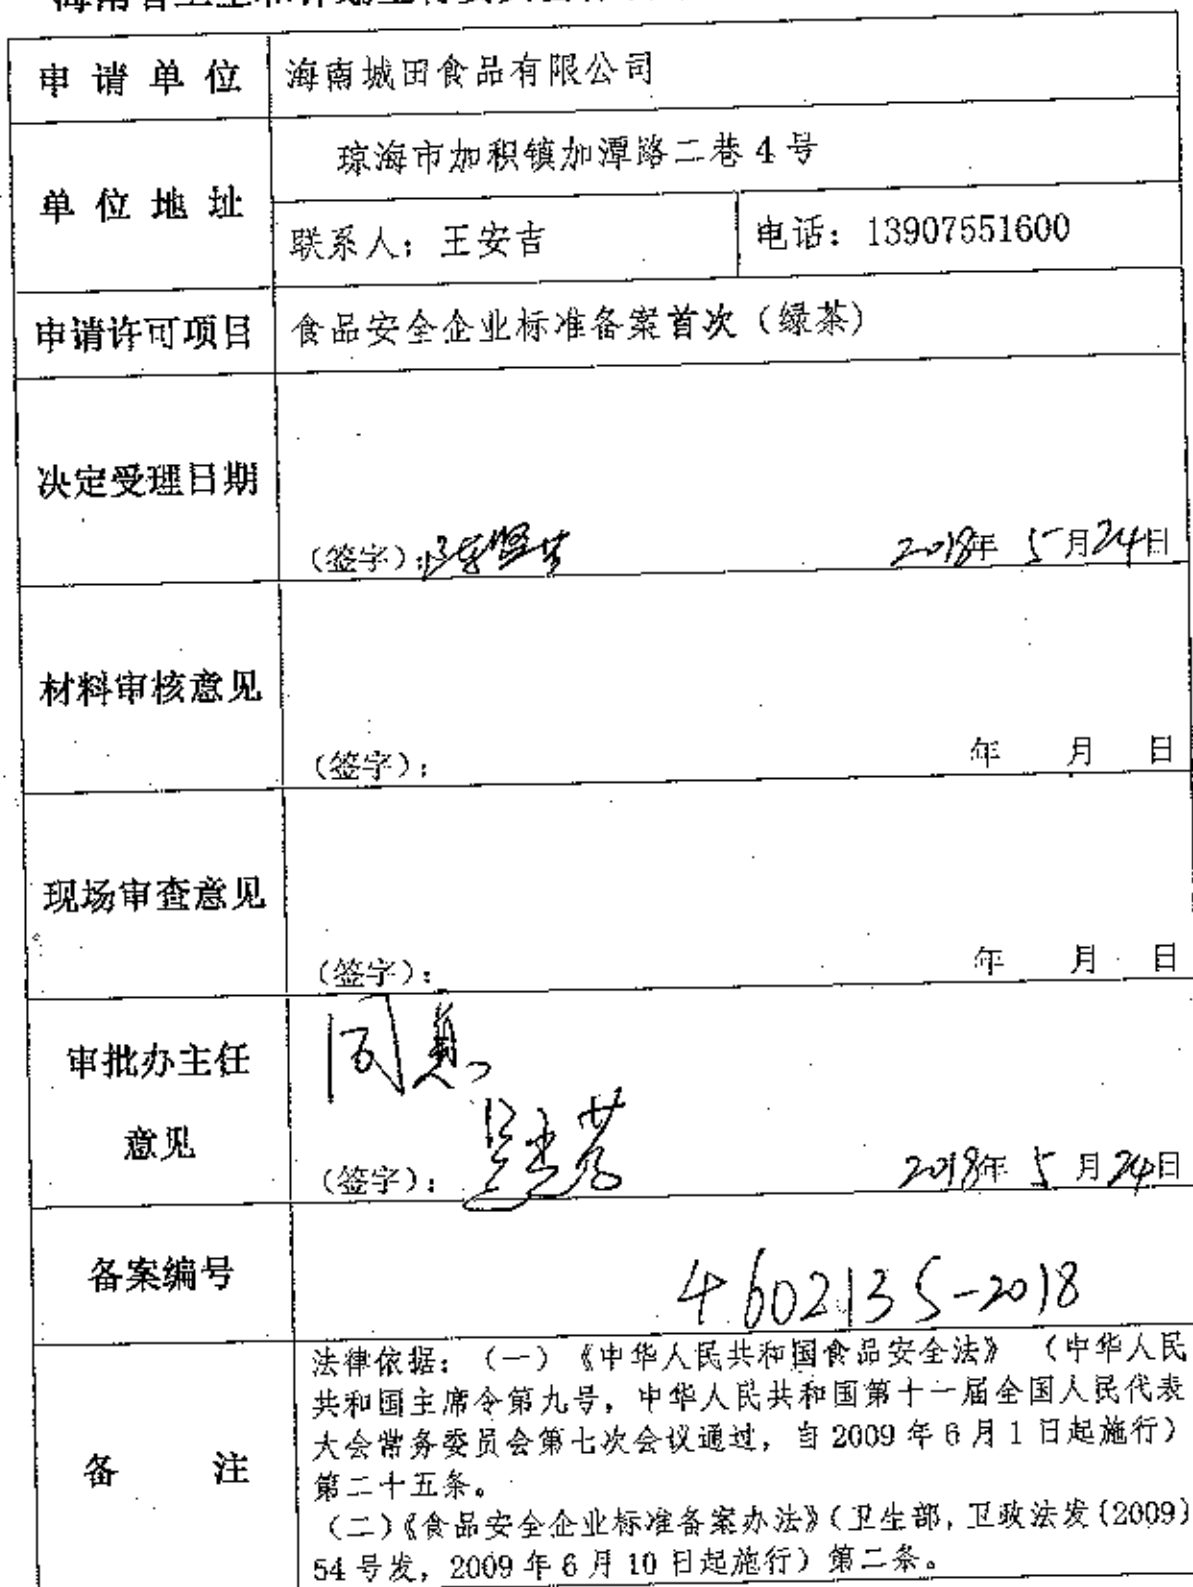 申请单位 海南城田食品有限公司
单位地址 琼海市加积镇加潭路二巷4号
联系人：王安吉 电话：13907551600
申请许可项目 食品安全企业标准备案首次（绿茶）
决定受理日期
（签字）： 2018年 5月24日
材料审核意见
（签字）： 年 月 日
现场审查意见
（签字）： 年 月 日
审批办主任
意见
同意
（签字）： 2018年 5月24日
备案编号 4602135-2018
备 注
法律依据：（一）《中华人民共和国食品安全法》（中华人民
共和国主席令第九号，中华人民共和国第十一届全国人民代表
大会常务委员会第七次会议通过，自2009年6月1日起施行）
第二十五条。
（二）《食品安全企业标准备案办法》（卫生部，卫政法发{2009}
54号发，2009年6月10日起施行）第二条。